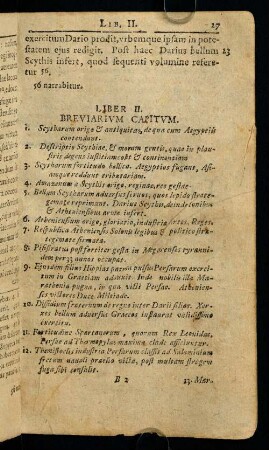 LIB. II. 27
exercitum Dario prodit, urbemque ipsam in pote-
statem ejus redigit. Post haec Darius bellum 23
Scythis infert, quod sequenti volumine refere-
tur 56.
56 narrabitur.
LIBER II.
BREVIARIUM CAPITUM.
1. Scytharum origo & antiquitas, de qua cum Aegyptiis
contendunt.
2. Descriptio Scythiae, & morum gentis, quae in plau-
stris degens justitiam colit & continentiam
3. Scytharum fortitudo bellica. Aegyptios fugant, Asi-
amque reddunt tributariam.
4. Amazonum a Scythis origo, reginae, res gestae
5. Bellum Scytharum adversus servos, quos lepido strate-
gemate reprimunt. Darius Scythis, deinde Ionibus
& Atheniensibus arma infert.
6. Atheniensium origo, gloriatio, industria, Artes, Reges.
7. Respublica Atheniensis Solonis legibus & politico stra-
tegemate firmata.
8. Pisistratus post feliciter gesta in Megarenses tyranni-
dem per 33 annos occupat.
9. Ejusdem filius Hippias paena pulsus Persarum exer-
citum in Graeciam adducit. Inde nobilis illa Ma-
rathonia pugna, in qua victi Persae. Athenien-
ses victores Duce Miltiade.
10. Dissidium fraternum de regno inter Darii filios. Xer-
xes bellum adversus Graecos instaurat validissimo
exercitu.
11. Fortitudine Spartanorum, quorum Rex Leonidas,
Persae ad Thermopylas maxima clade afficiuntur.
12. Themistoclis industria Persarum classis ad Salaminium
fretum navali praelio victa, post multam stragem
fuga sibi consulit.
B 2 13. Mar-